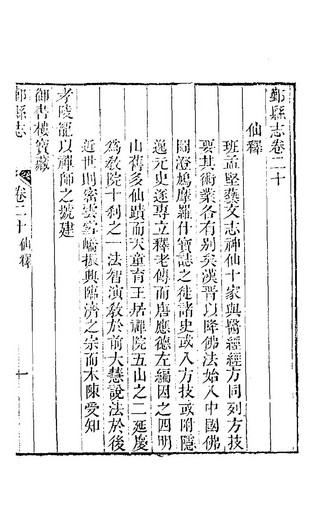 鄞縣志卷二十
仙釋
班孟堅藝文志神仙十家與醫經經方同列方技
要其術業各有別矣漢晉以降佛法始入中國佛
圖澄鳩摩羅什寶誌之徒諸史或入方技或附隱
逸元史遂專立釋老傳而唐應德左編因之四明
山舊多仙蹟而天童育王居禪院五山之二延慶
為教院十刹之一法智演教於前大慧說法於後
近世則密雲雪嶠振興臨濟之宗而木陳受知
孝陵寵以禪師之號建
御書樓寶藏
鄞縣志
卷二十仙釋
一